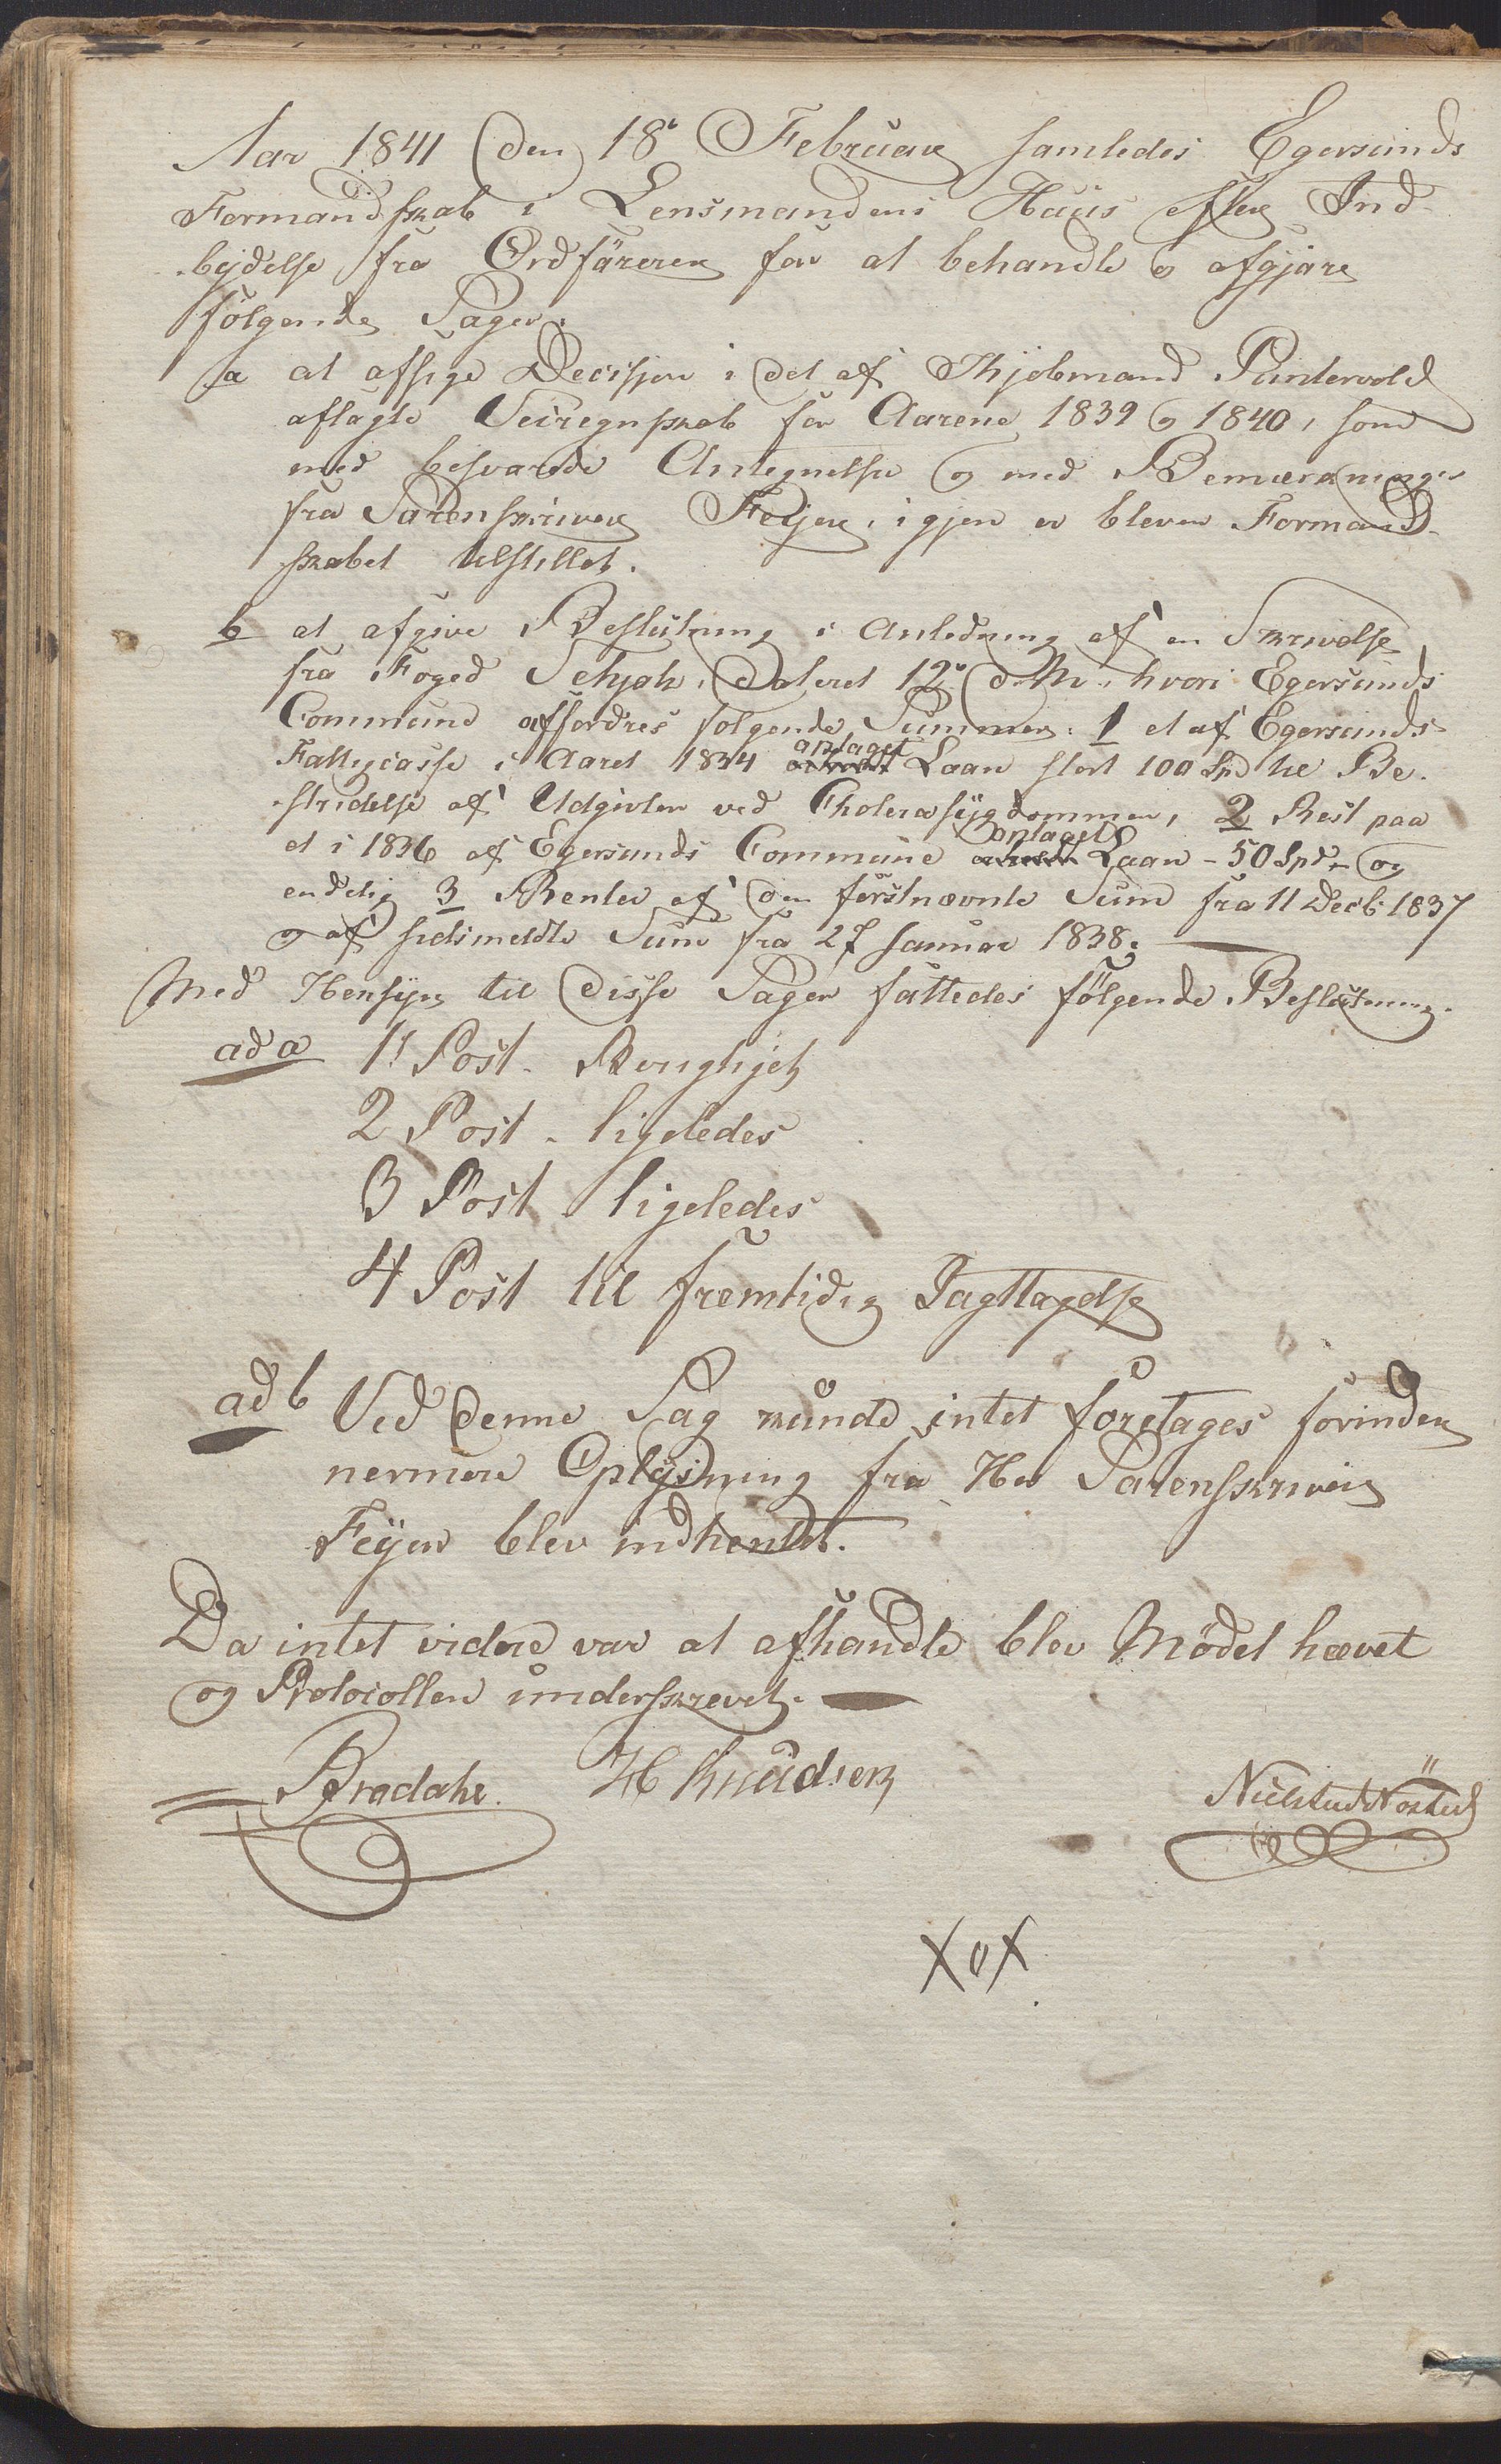 Aar 1841 den 18de Februar samledes Egersunds
Formandskab i Lensmandens Huus efter Ind-
bydelse fra Ordføreren for at behandle og afgjøre
følgende Sager.
a at afsige Decisjon i det af Skjebmand Puntervold
aflagte Veiregnskab for Aarene 1839 og 1840, som
med besvarede Antegnelser og med Bemærkninger
fra Sorenskriver Feyer, igjen er bleven Formand-
skabet tilstillet.
b at afgive Beslutning i Anledning af en Skrivelse
fra Foged Schjøtz, dateret 12te d. M. hvori Egersunds
Commune affordres følgende Summer: 1 et af Egersunds
Fattigcasse i Aaret 1834 antaget Laan stort 100 Spd til Be-
stridelse af Udgivter ved Cholerasygdommen, 2 Rest paa
et i 1836 af Egersunds Commune antaget Laan - 50 Spd - og
endelig 3 Renter af den førstnævnte Sum fra 11 Decb 1837
og af sidsmeldte Sum fra 27 Januar 1838.
Med Hensyn til disse Sager fattedes følgende Beslutning.
ad a 1st Post. Rengligjet
2 Post - ligeledes
3 Post ligeledes
4 Post til fremtidig Iagttagelse
ad b Ved denne Sag kunde intet foretages forinden
nermere Oplysning fra Her Sorenskriver
Feyer blev indhentet.
Da intet videre var at afhandle blev Mødet hævet
og Protocollen underskrevet.
Bradahl. H Knudsen
XoX